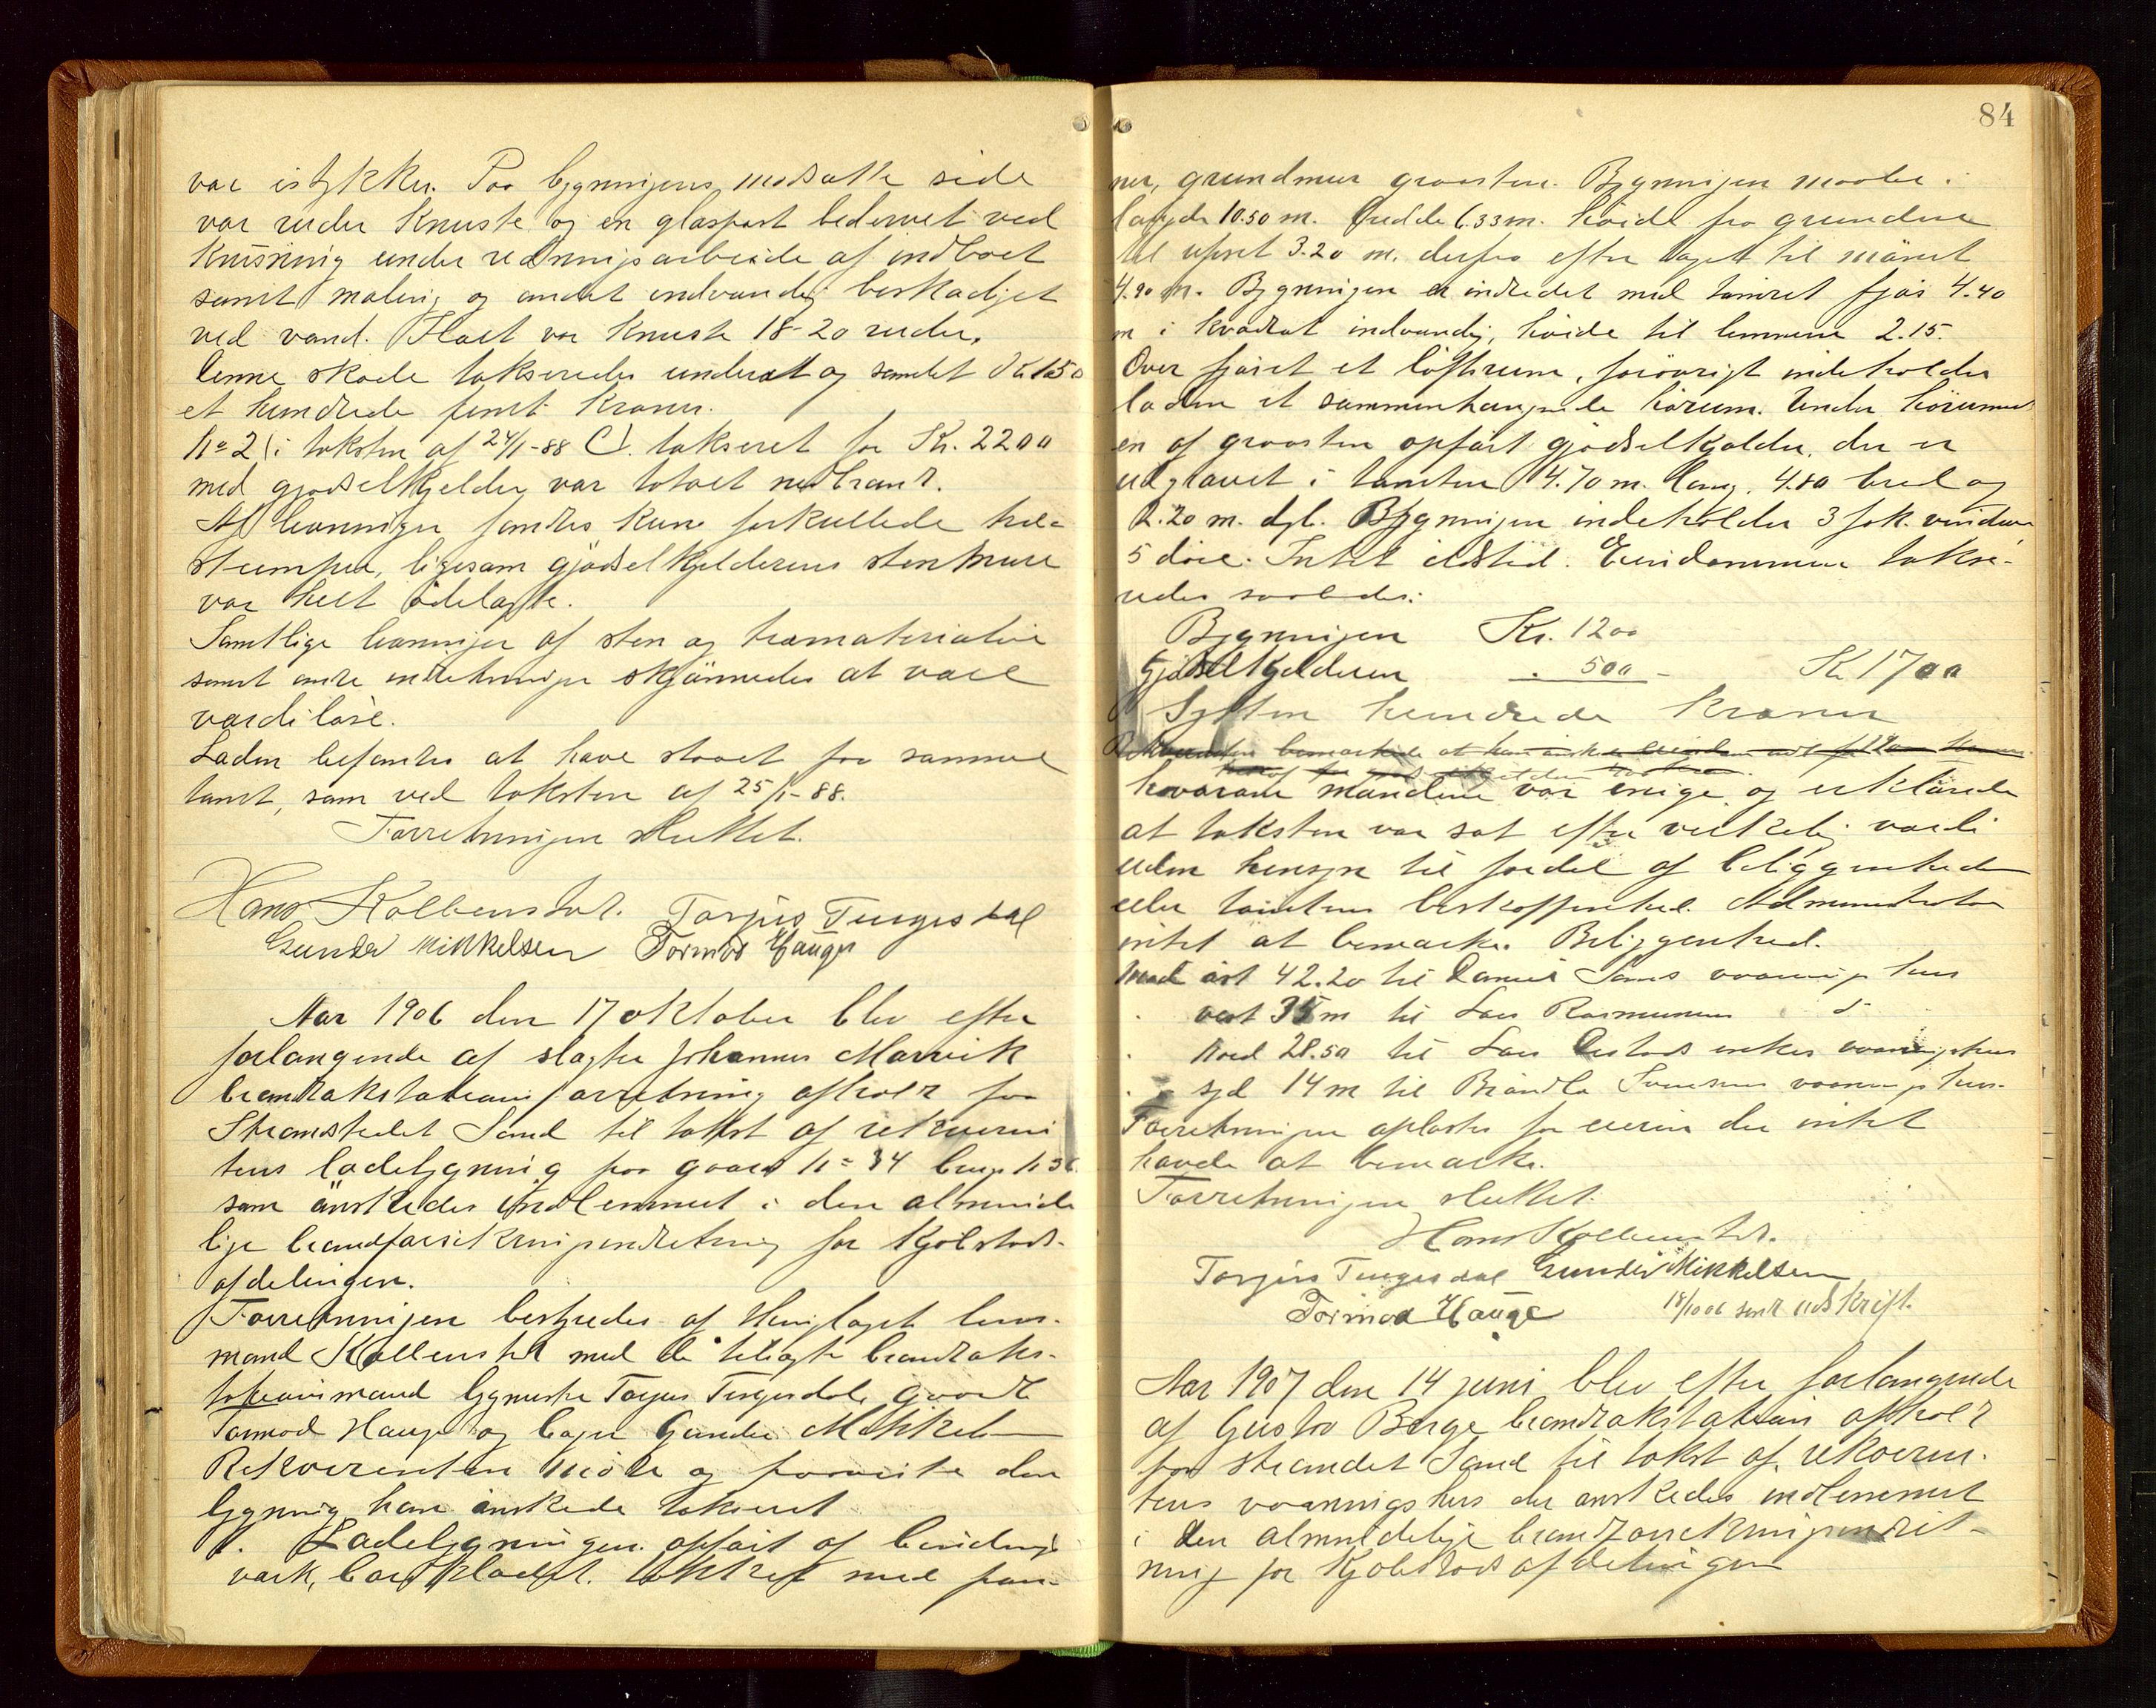 var istykker. Paa bygningens modsatte side
var ruder knuste og en glaspost bedervet ved
knusning under redningsarbeide af indboet
samt maling og andet indvendig beskadiget
ved vand. Ialt var knuste 18-20 ruder.
Denne skade takseredes underet og samlet Kr 150
et hundrede femti kroner.
No 2 (i taksten af 24/1-88 C). takseret for Kr. 2200
med gjødselkjelder var totalt nedbrændt.
Af levninger fandtes kun forkullede træ-
stumper, ligesom gjødselkjelderens stenmure
var helt ødelagte.
Samtlige levninger af sten og træmaterialier
samt andre indretninger skjønnedes at være
værdiløse.
Laden befandtes at have staaet paa samme
tomt, som ved taksten af 25/1-88.
Forretningen sluttet.
Hans Kolbenstvedt. Torjus Tengesdal
Gunder Mikkelsen Tormod Hauge
Aar 1906 den 17 oktober blev efter
forlangende af slagter Johannes Marvik
brandtakstationsforretning afholdt paa
Strandstedet Sand til takst af rekvirent
tens ladebygning paa gaards no 34 brugs no 36
som ønskedes indlemmet i den alminde
lige brandforsikringsindretning for Kjøbstads-
afdelingen.
Forretningen bestyredes af Henlagt lens-
mand Kolbenstvedt med de tilsagte brandtaks-
tationsmænd bygmester Torjus Tengesdal, gaardbr
Tormod Hauge og bager Gunder Mikkelsen
Rekvirenten mødte og paaviste den
bygning han ønskede takseret
1. Ladebygningen opført af bindings
værk, bordklædt. tækket med pan-
84
ner, grundmur graasten. Bygningen maaler i
længde 10.50 m. bredde 6.33 m. høide fra grunden
til ufsret 3.20 m. derfra efter taget til mønet
4.20 m. Bygningen er indredet med tømret fjøs 4.40
m i kvadrat indvendig, høide til lemmene 2.15.
Over fjøset et lofterum, forøvrigt indeholder
laden et sammenhængende hørum. Under hørummet
en af graasten opført gjødselkjelder, der er
udgravet i tomten 4.70 m. lang, 4.80 bred og
2.20 m. dyb. Bygningen indeholder 3 fok. vinduer
5 døre. Intet ildsted. Eiendommen takse-
redes saaledes:
Bygningen Kr. 1200
Gjødselkjelderen " 500 - Kr. 1700
Sytten hundrede kroner
Rekvirenten bemærkede at han ønsker
hvorom mændene var enige og erklærede
at taksten var sat efter virkelig værdi
uden hensyn til fordel af beliggenheden
eller tomtens beskaffenhed. Administrator
intet at bemærke. Beliggenhed.
Mod øst 42.20 til Daniel Sands vaaningshus
" vest 35 m til Lars Rasmussens d
" nord 28.50 til Lars enkes vaaningshus
" syd 14 m til Svensens vaaningshus.
Forretningen oplæstes for eieren der intet
havde at bemærke.
Forretningen sluttet.
Hans Kolbenstvedt.
Torjus Tengesdal Gunder Mikkelsen
Tormod Hauge 18/10 06 sendt udskrift.
Aar 1907 den 14 juni blev efter forlangende
af Gustav Berge brandtakstation afholdt
paa strandstedet Sand til takst af rekviren-
tens vaaningshus der ønskedes indlemmet
i den almindelige brandforsikringsindret-
ning for Kjøbstadsafdelingen